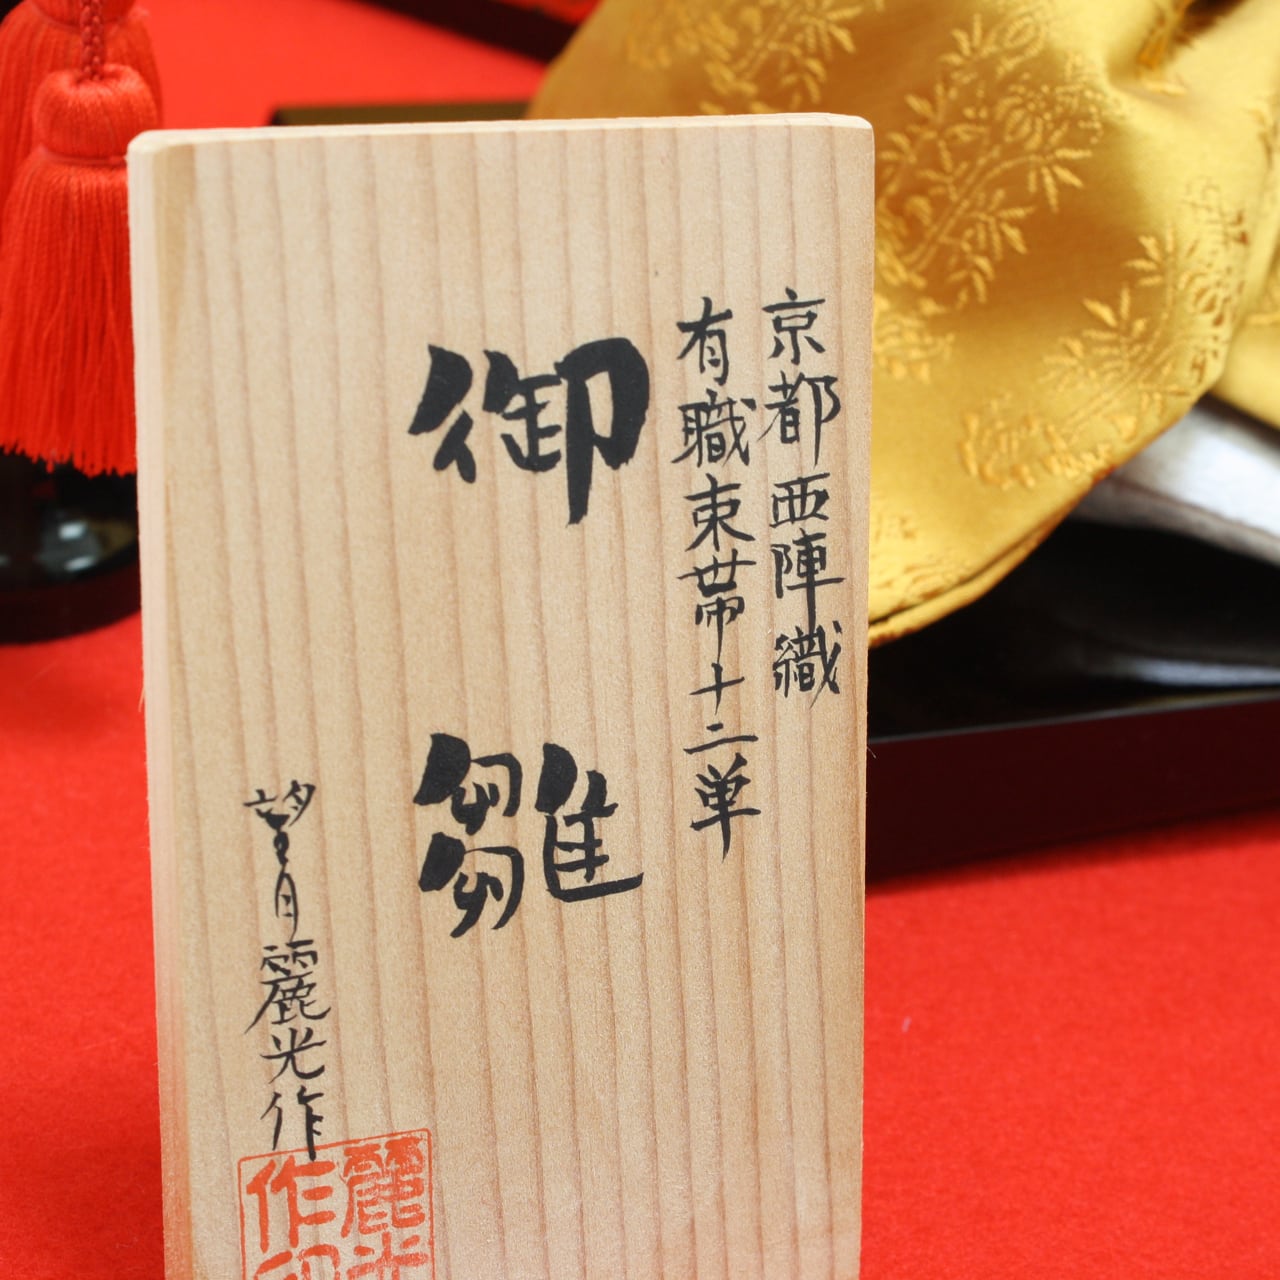 京都西陣織
有職束帯十二単
御雛
望月麗光作
麗光
作印